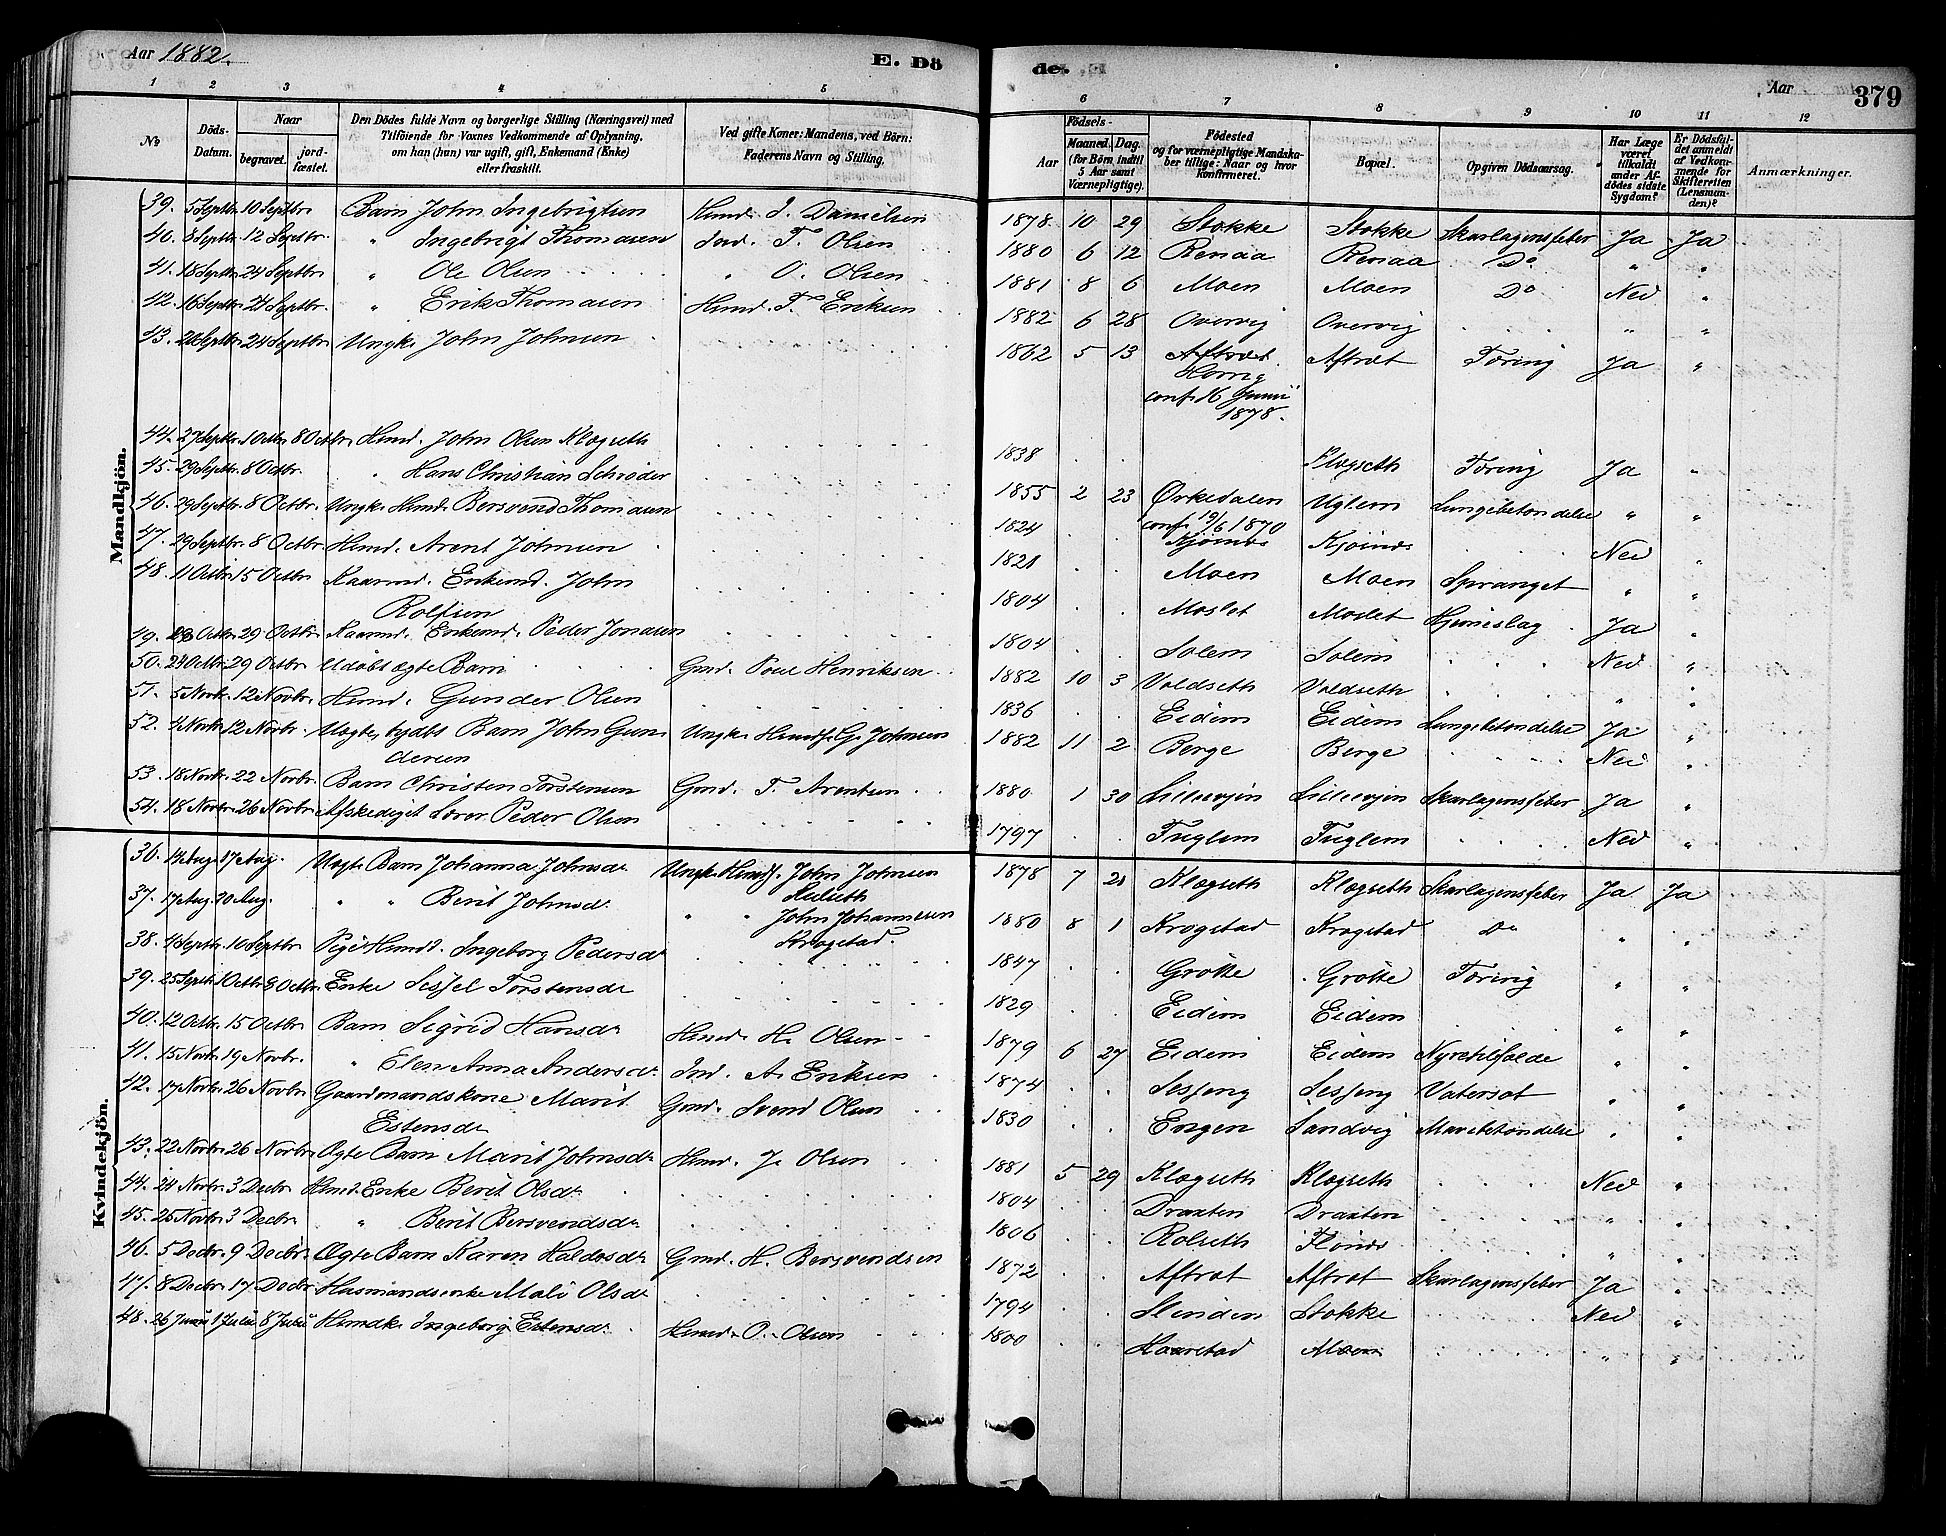 Aar 1882.
E. Dö
de.
Aar
379
1 2 3 4 5 6 7 8 9 10 11 12
No
Döds-Datum.
Naar
begravet.
jordfæstet.
Den Dödes fulde Navn og borgerlige Stilling (Næringsvei) med
Tilföiende for Voxnes Vedkommende af Oplysning,
om han (hun) var ugift, gift, Enkemand (Enke)
eller fraskilt.
Ved gifte Koner: Mandens, ved Börn:
Faderens Navn og Stilling.
Födsels-
Aar
Maaned. Dag.
(for Börn indtil
5 Aar samt
Værnepligtige).
Födested
og for værnepligtige Mandska-
ber tillige: Naar og hvor
konfirmeret.
Bopæl.
Opgiven Dödsaarsag.
Har Læge
været
tilkaldt
under Af-
dödes sidste
Sygdom?
Er Dödsfal-
det anmeldt
af Vedkom-
mende for
Skifteretten
(Lensman-
den)?
Anmærkninger.
Mandkjön.
39. 5 Septbr 10 Septbr Barn John Ingebrigtsen Hmd. J. Danielsen 1878 10 29 Stokke Stokke Skarlagensfeber Ja Ja
40. 8 Septbr. 12 Septbr. " Ingebrigt Thomasen Ind. T. Olsen 1880 6 12 Renaa Renaa Do " "
41. 18 Septbr. 24 Septbr " Ole Olsen " O. Olsen 1881 8 6 Moen Moen Do Nei "
42. 16 Septbr. 24 Septbr. " Erik Thomasen Hmd. T. Eriksen 1882 6 28 Overvig Overvig " "
43. 20 Septbr. 24 Septbr. Ungk. John Johnsen 1862 5 13 Aftræt Aftræt Tæring Ja "
conf. 16 Junii
1878.
44. 27 Septbr. 1 Octbr. 8 Octbr. Hmd. John Olsen Klægseth 1838 Klegseth Tæring Ja "
45. 29 Septbr. 8 Octbr. " Hans Christian Schrøder 1855 2 23 Ørkedalen Uglem Lungebetændelse " "
conf. 19/6 1870
46. 29 Septbr. 8 Octbr. Ungk. Hmd. Bersvend Thomasen 1824 Kjøsnæs Kjøsnæs Nei "
47. 29 Septbr. 8 Octbr. Hmd. Arent Johnsen 1821 Moen Moen Spranget " "
48. 11 Octbr. 15 Octbr Kaarmd. Enkemd. John
Rolfsen 1804 Moslet Moslet Hjerneslag Ja "
49. 23 Octbr. 29 Octbr. Kaarmd. Enkemd. Peder Jonasen 1804 Solem Solem Nei "
50. 24 Octbr. 29 Octbr Udøbt ægte Barn Gmd. Poul Henriksen 1882 10 3 Voldseth Voldseth " "
51. 5 Novbr. 12 Novbr. Hmd. Gunder Olsen 1836 Eidem Eidem Lungebetændelse Ja "
52. 4 Novbr. 12 Novbr. Uægte, Barn John Gun
dersen Ungk. G. Johnsen 1882 11 2 Berge Berge Nei "
53. 18 Novbr. 22 Novbr. Barn Christen Torstensen Gmd. T. Arentsen 1880 1 30 Lillevjen Lillevjen Skarlagensfeber Ja "
54. 18 Novbr. 26 Novbr. Afskediget Lærer Peder Olsen 1797 Tuglem Tuglem Nei "
Kvindekjön.
36. 14 Aug. 17 Aug. Uægte Barn Johanna Johnsdr Ungk. John Johnsen 1878 7 21 Klægseth Klægseth Skarlagensfeber Ja Ja
37. 17 Aug. 20 Aug. " " Berit Johnsdr. " " John Johannesen
Krogstad. 1880 8 1 Krogstad Krogstad Do " "
38. 4 Septbr. 10 Septbr. Pige Ingeborg Pedersdr 1847 Grøtte Grøtte Tæring " "
39. 25 Septbr. 1 Octbr. 8 Octbr. Enke Sessel Torstensdr 1829 Eidem Eidem " "
40. 12 Octbr. 15 Octbr Barn Sigrid Hansdr Hmd. H. Olsen 1879 6 27 Eidem Eidem Nyretilfælde " "
41. 15 Novbr. 19 Novbr. " Elen Anna Andersdr. Ind. A. Eriksen 1874 Sesseng Sesseng Vatersot " "
42. 17 Novbr. 26 Novbr Gaardmandskone Marit
Estensdr Gmd. Svend Olsen 1830 Engen Sandvig Mavebetændelse " "
43. 22 Novbr. 26 Novbr Ægte Barn Marit Johnsdr. Hmd. J. Olsen 1881 5 29 Klægseth Klægseth Nei "
44. 24 Novbr. 3 Decbr Hmd. Enke Berit Olsdr. 1804 Draxten Draxten " "
45. 25 Novbr 3 Decbr. " Berit Bersvendsdr 1806 Rolseth Flønæs " "
46. 5 Decbr. 9 Decbr. Ægte Barn Karen Haldosdr Gmd. H. Bersvendsen 1872 Aftræt Aftræt Skarlagensfeber Ja "
47. 8 Decbr. 17 Decbr Husmandsenke Mali Olsdr 1794 Slinden Stokke Nei "
48. 26 Junii 1 Julii 8 Julii Hmdk. Ingeborg Estensdr. Hmd. O. Olsen 1800 Haarstad Moen " "